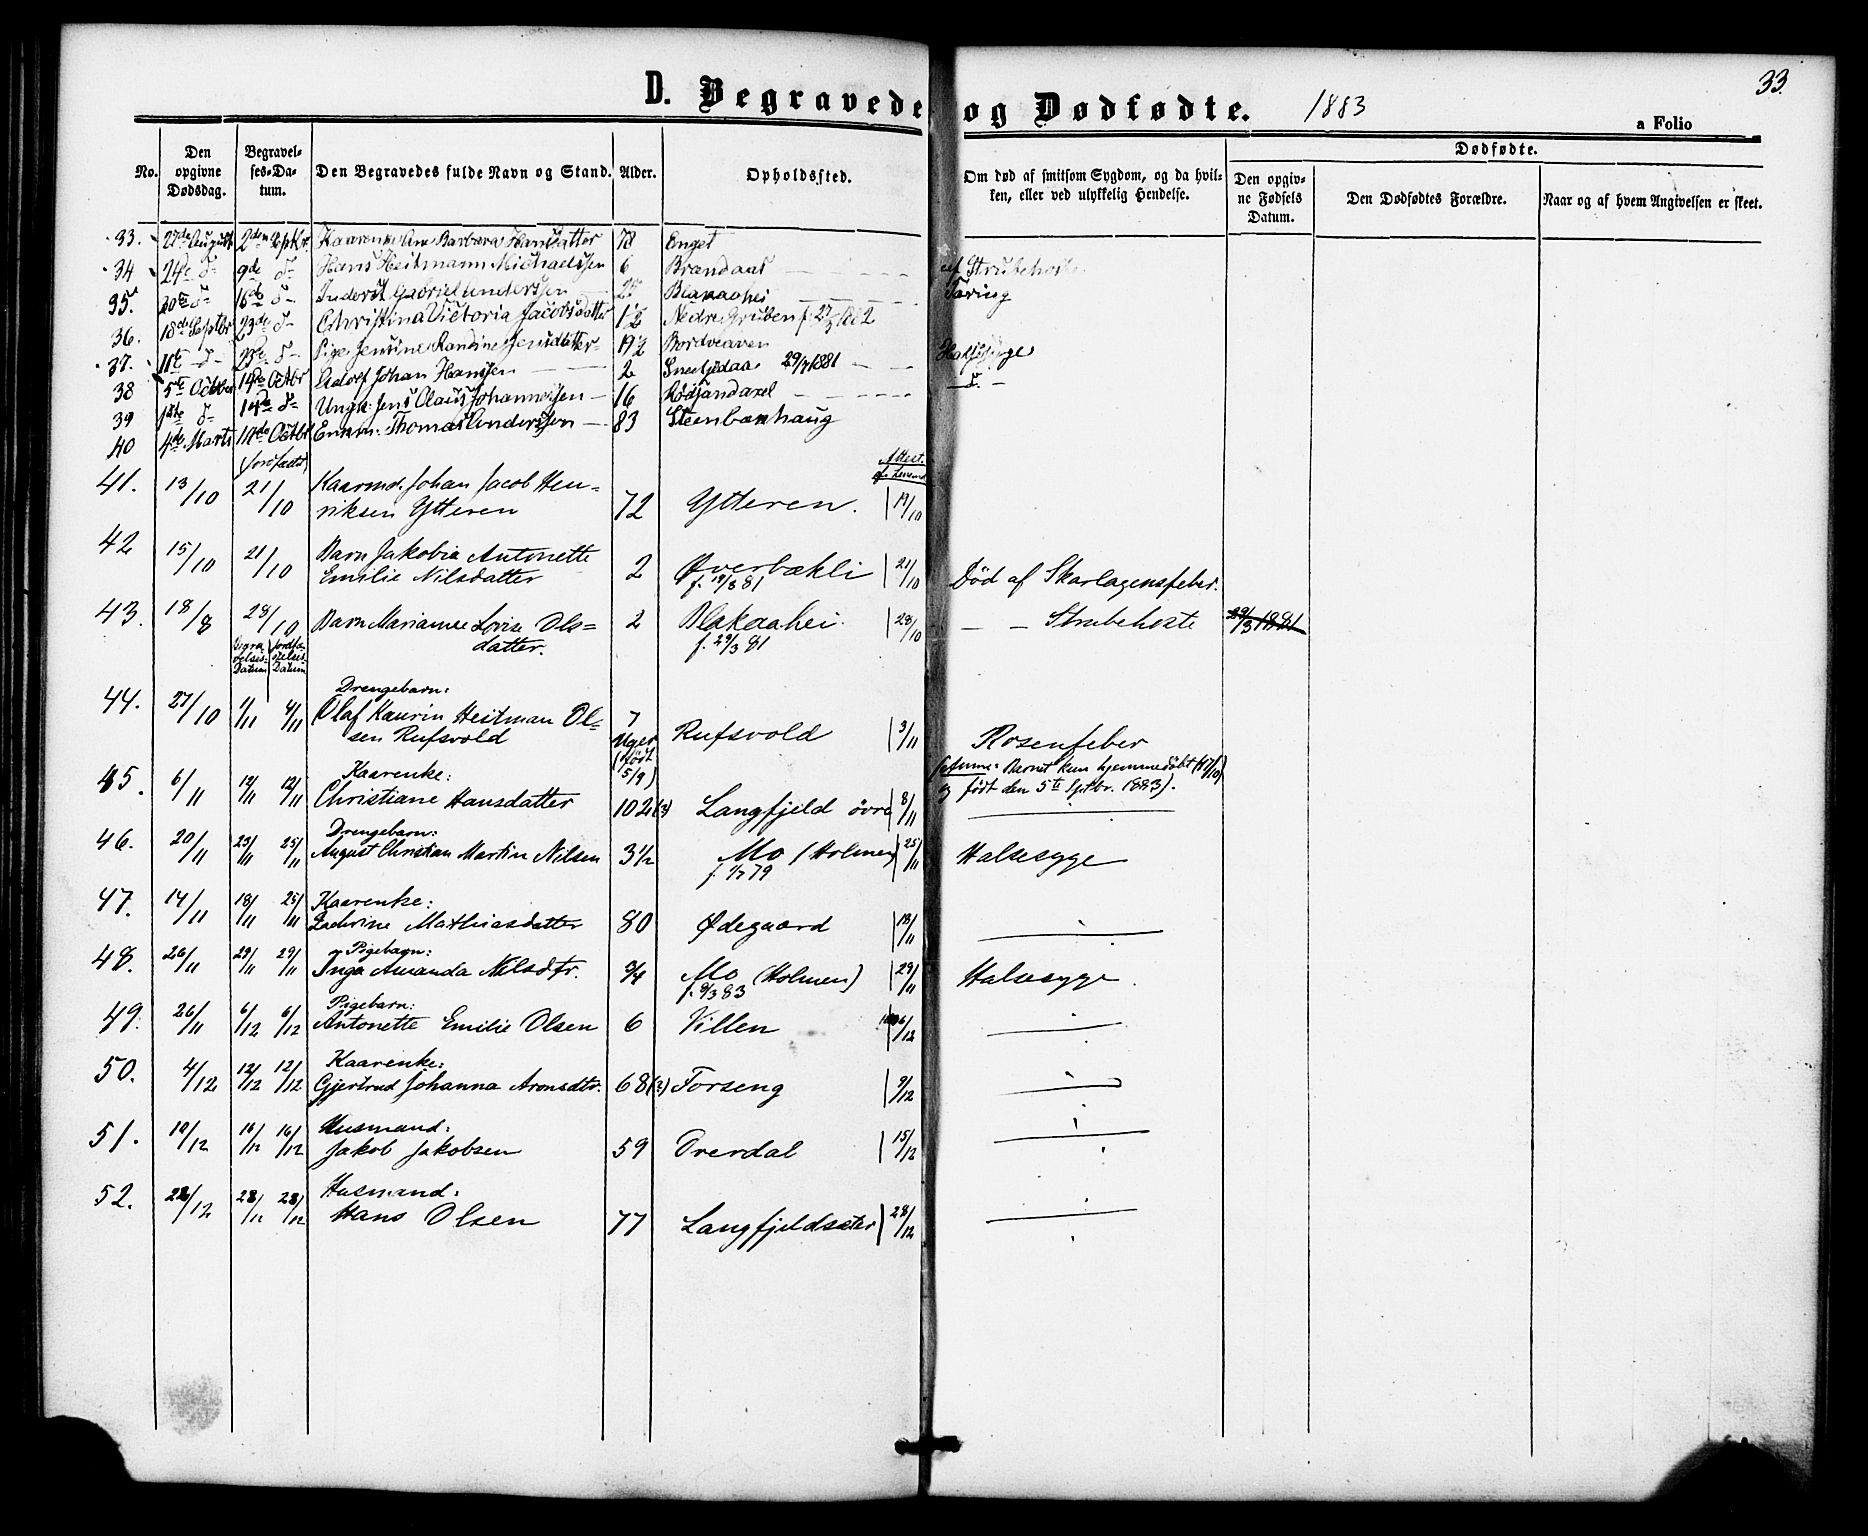 33.
D. Begravede og Dødfødte. 1883
a Folio
No. | Den opgivne Dødsdag. | Begravelses-Datum. | Den Begravedes fulde Navn og Stand. | Alder. | Opholdssted. | Om død af smitsom Sygdom, og da hvilken, eller ved ulykkelig Hendelse. | Dødfødte. Den opgivne Fødsels Datum. | Den Dødfødtes Forældre. | Naar og af hvem Angivelsen er skeet.
33. 27de August 2den Septbr Kaarenke Ane Barbara Hansdatter 78 Enget
34 24de d- 9de d- Hans Heitmann Michaelssen 6 Brandaas af Strubehoste
35. 20de d- 16de d- Inderst Gabriel Anderssen Blakaahei Tæring
36. 18de Septbr 23de d- Christina Victoria Jacobsdatter 1½ Nedre Gruben
37. 11te d- 23de d- Pige Jensine Randine Jensdatter 19½ Bordvedaven Halssyge
38 5te October 14de Octbr Adolf Johan Hanssen 2 Snefjeldaa 29/7 1881 d-
39 1ste d- 14de d- Ungk. Jens Olaus Johannessen 16 Rødsandaxel
40 4de Marts Octbr Enkm. Thomas Anderssen 83 Steenbækhaug
(Jordfæstet)
Attest.
41. 13/10 21/10 Kaarmd. Johan Jacob Hen=
riksen Ytteren 72 Ytteren. 19/10
42 15/10 21/10 Barn Jakobia Antonette
Emilie Nilsdatter 2 Øverbækli 21/10 Død af Skarlagensfeber.
f. 19/8 81
43. 18/8 28/10 Barn Marianne Lovise Ols= 2 Blakaahei 28/10 — — Strubehoste 29/3 1881
datter. f. 29/3 81
Begravelses-Datum Jordfæstelses-Datum
Drengebarn:
44. 27/10 4/11 4/11 Olaf Kaurin Heitman Ol=
sen Rufsvold 7 Uger (født 5/9) Rufsvold 3/11 Rosenfeber
(Anm: Barnet kun hjemmedøbt (17/10)
og født den 5te Sptbr. 1883).
Kaarenke:
45. 6/11 12/11 12/11 Christiane Hansdatter 102 (3) Langfjeld øvre 8/11
Drengebarn:
46. 20/11 25/11 25/11 August Christian Martin Nilsen 3½ Mo (Holmen) 25/11 Halsesyge
Kaarenke:
47. 14/11 18/11 25/11 Zachrine Mathiasdatter 80 Ødegaard 18/11
Pigebarn:
48. 26/11 29/11 29/11 Inga Amanda Nilsdtr. ¾ Mo (Holmen) 29/11 Halsesyge.
Pigebarn:
49. 26/11 6/12 6/12 Antonette Emilie Olsen 6 Villen 6/12
Kaarenke:
50. 4/12 12/12 12/12 Gjertrud Johanna Aronsdtr. 68 (2) Forseng 9/12
Husmand:
51. 10/12 16/12 16/12 Jakob Jakobsen 59 Drerdal 15/12
Husmand:
52. 22/12 28/12 28/12 Hans Olsen 77 Langfjeldsæter 28/12